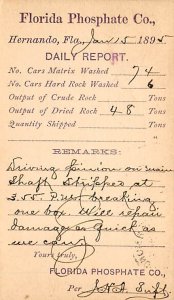 Florida Phosphate Co.,
Hernando, Fla., Jan 15 1895
DAILY REPORT.
No. Cars Matrix Washed 74
No. Cars Hard Rock Washed 6
Output of Crude Rock Tons
Output of Dried Rock 48 Tons
Quantity Shipped Tons
REMARKS:
Driving pinion on main
Shaft stripped at
3.55. P.M. breaking
one box. Will repair
damage as quick as
we can
Yours truly,
FLORIDA PHOSPHATE CO.,
Per Supt.